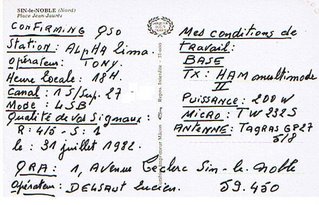 SIN-le-NOBLE (Nord)
Place Jean-Jaurès
CONFIRMING QSO
Station: ALPHA Lima.
Opérateur: TONY.
Heure Locale: 18H.
Canal: 1S/Sup. 27
Mode: USB
Qualité de Vos Signaux:
R: 4/5 - S: 1
le: 31 juillet 1982.
QRA: 1, Avenue Leclerc Sin-le-Noble
Opérateur: DELSAUT Lucien. 59.450
Mes conditions de
travail:
BASE
TX: HAM multimode
II
Puissance: 200W
MICRO: TW232S
ANTENNE: TAGRAS GP27
5/8